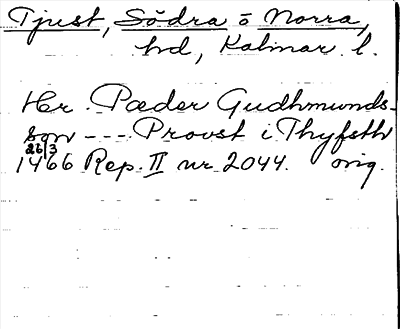 Tjust, Södra o Norra,
hd, Kalmar l.
Her Pæder Gudhmunds-
son --- Provst i Thyfsth
26/3
1466 Rep. II nr 2044. orig.